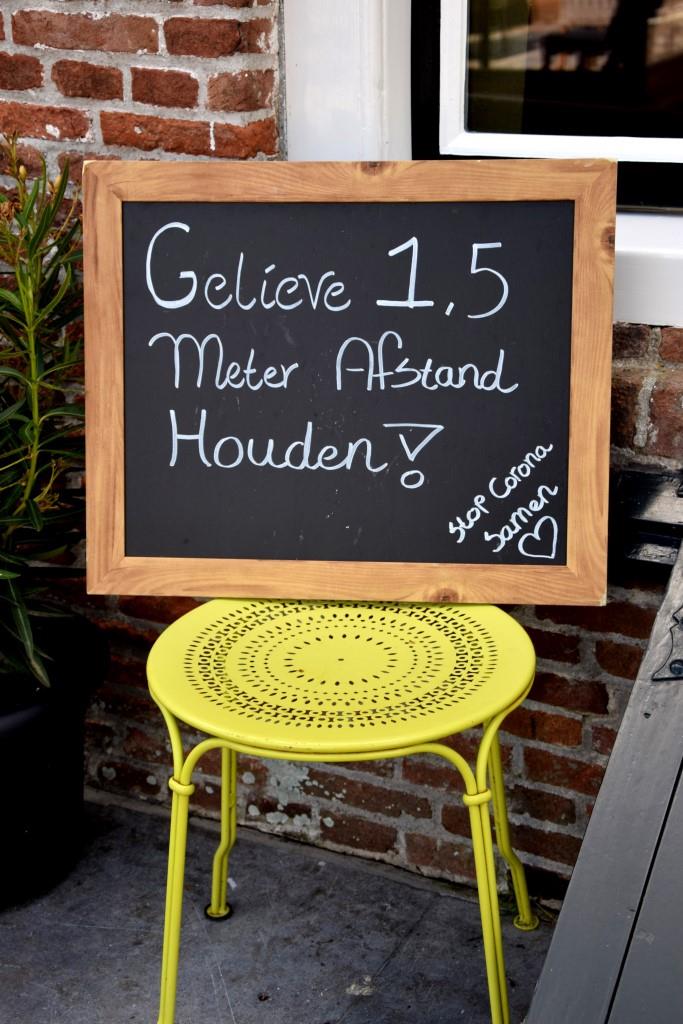 Gelieve 1,5
Meter Afstand
Houden!
Stop Corona
Samen ♡